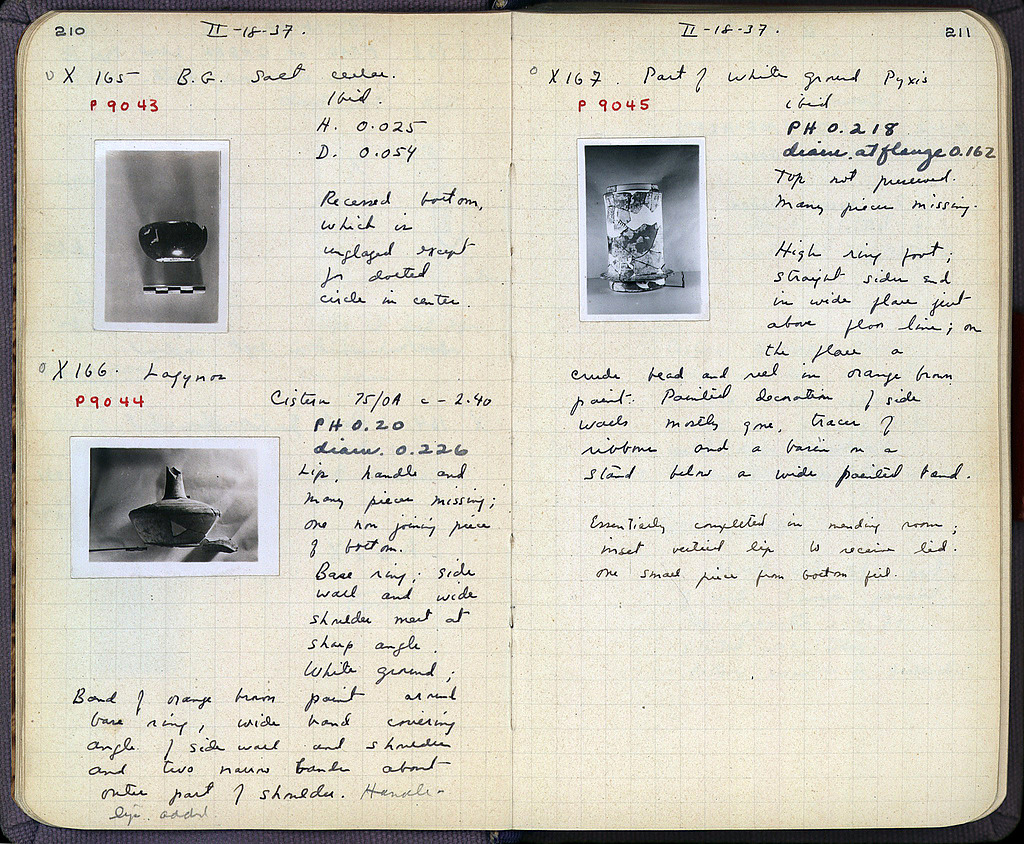 210
II-18-37.
X 165 B.G. Salt cellar.
P 9043
Ibid.
H. 0.025
D. 0.054
Recessed bottom,
which is
unglazed except
for dotted
circle in center.
X 166. Lagynos
P 9044
Cistern 75/ΟΛ c - 2.40
PH 0.20
diam. 0.226
Lip, handle and
many pieces missing;
one non joining piece
of bottom.
Base ring; side
wall and wide
shoulder meet at
sharp angle.
White ground;
Band of orange brown paint around
base ring, wide band covering
angle of side wall and shoulder
and two narrow bands about
outer part of shoulder. Handle-
lip. added.
II-18-37.
211
X 167. Part of White ground Pyxis
P 9045
ibid
PH 0.218
diam. at flange 0.162
Top not preserved.
Many pieces missing.
High ring foot;
straight sides end
in wide flare just
above floor line; on
the flare a
crude bead and reel in orange brown
paint. Painted decoration of side
walls mostly gone, traces of
ribbons and a basin on a
stand below a wide painted band.
Essentially completed in mending room;
inset vertical lip to receive lid.
One small piece from bottom fill.